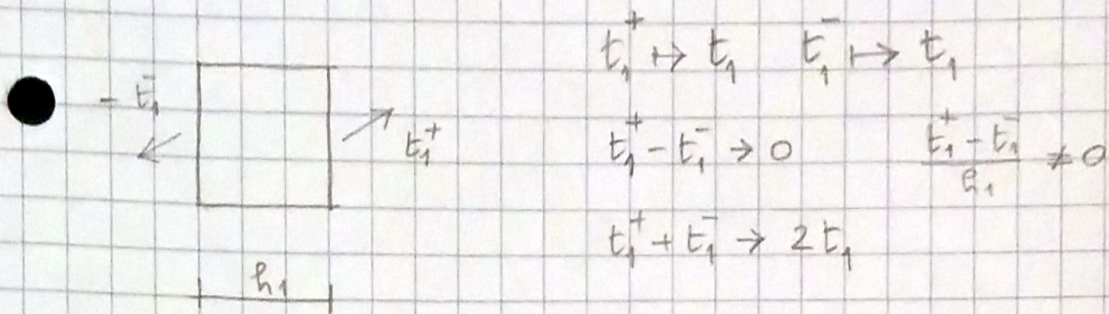 t₁⁺ ↦ t₁   t₁⁻ ↦ t₁
- t₁⁻
t₁⁺
t₁⁺ - t₁⁻ → 0   (t₁⁺ - t₁⁻)/h₁ ≠ 0
t₁⁺ + t₁⁻ → 2t₁
h₁